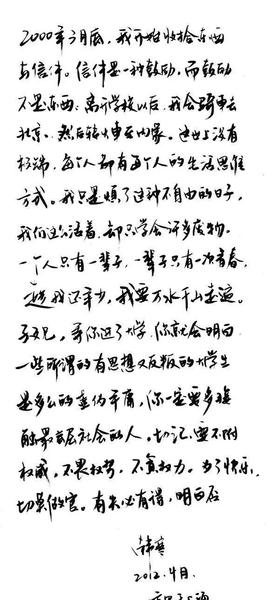 2000年3月底,我开始收拾东西
与信件。信件是一种鼓励,而鼓励
不是东西。离开学校以后,我会骑车去
北京,然后转火车在内蒙。这世上没有
权锦,每个人都有每个人的生活思维
方式。我只是烦了这种不自由的日子,
我们这么活着,却只学会许多废物。
一个人只有一辈子,一辈子只有一次青春,
趁我还年少,我要万水千山走遍。
等你进了大学,你就会明白
一些所谓的有思想又反叛的大学生
是多么的虚伪平庸,你一定要多接
触最底层社会的人。切记,要不附
权威,不畏权势,不负权力。为了快乐,
切莫做官。有失必有得,明白否
韩寒
2012.4月.